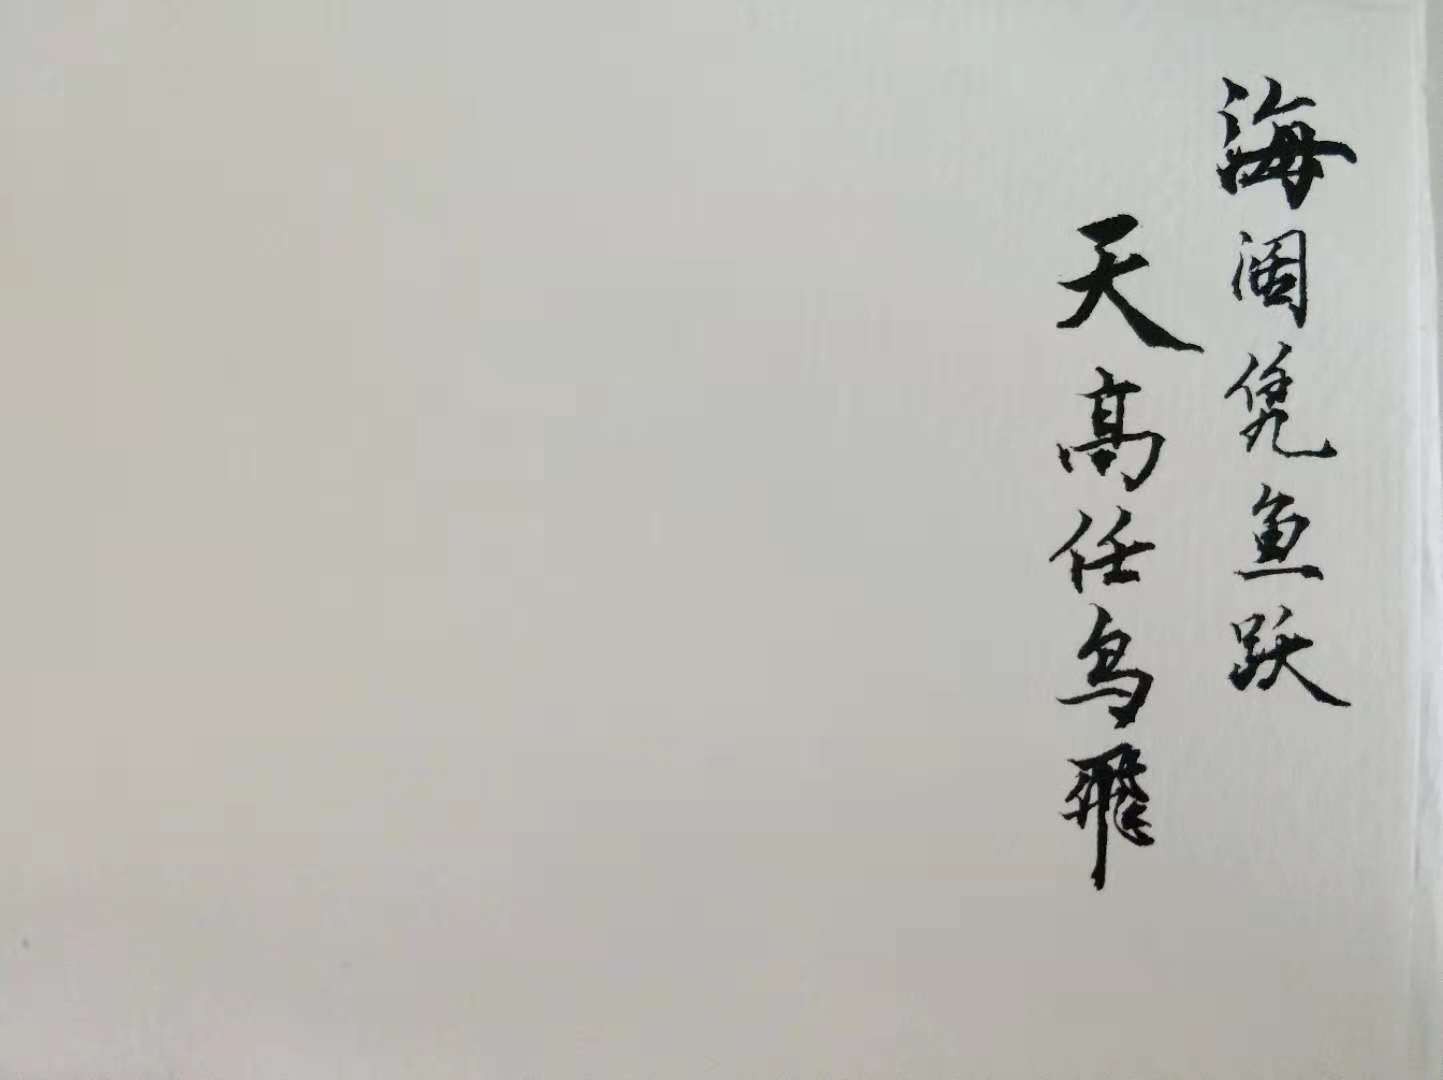 海阔凭鱼跃
天高任鸟飛